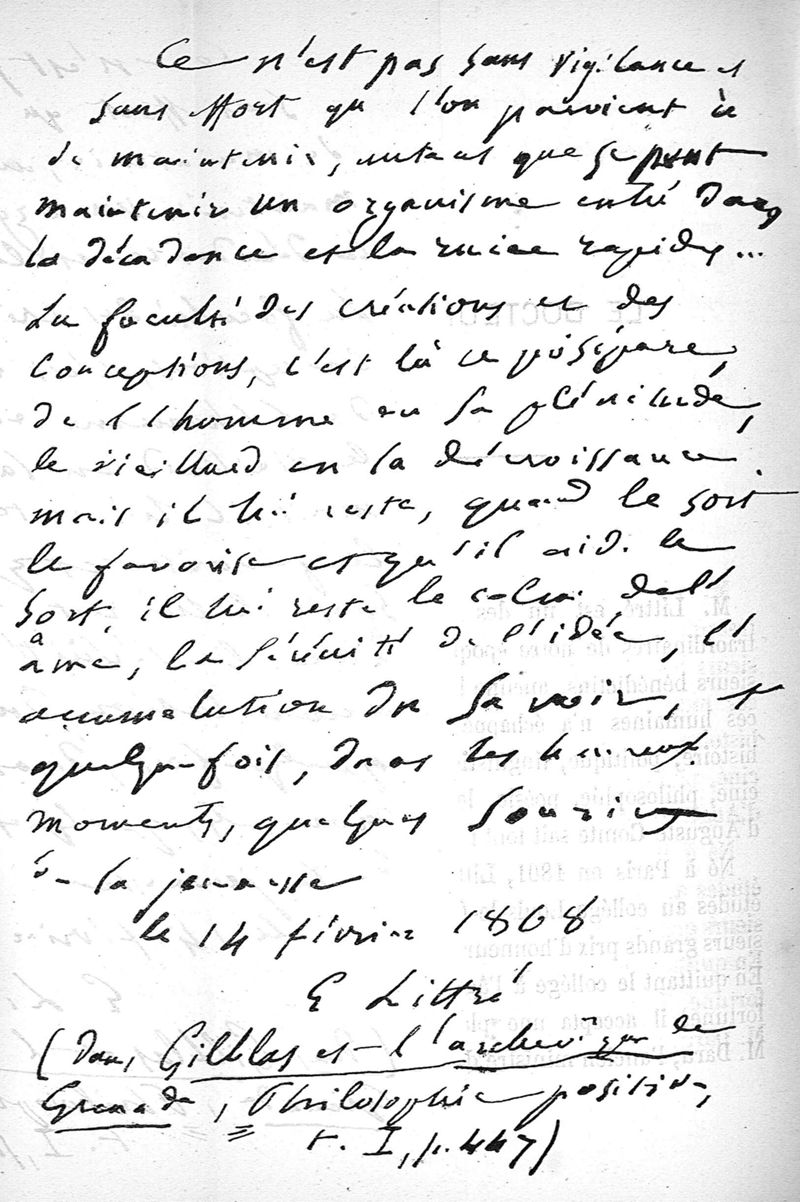 Ce n'est pas sans vigilance et
sans effort qu l'on parvient à
de maintenir, autant que se peut
maintenir un organisme entré dans
la décadence et la ruine rapides...
La faculté des créations et des
conceptions, c'est là ce qui sépare,
de l'homme en sa plénitude,
le vieillard en la décroissance.
mais il lui reste, quand le sort
le favorise et qu'il aide le
sort, il lui reste le calme de l'
âme, la sérénité de l'idée, l'
accumulation du savoir, et
quelquefois, dans les heureux
moments, quelques sourires
de la jeunesse
le 14 février 1868
E Littré
(dans Gilblas et l'archevêque de
Grenade, Philosophie positive,
t. I, p. 447)